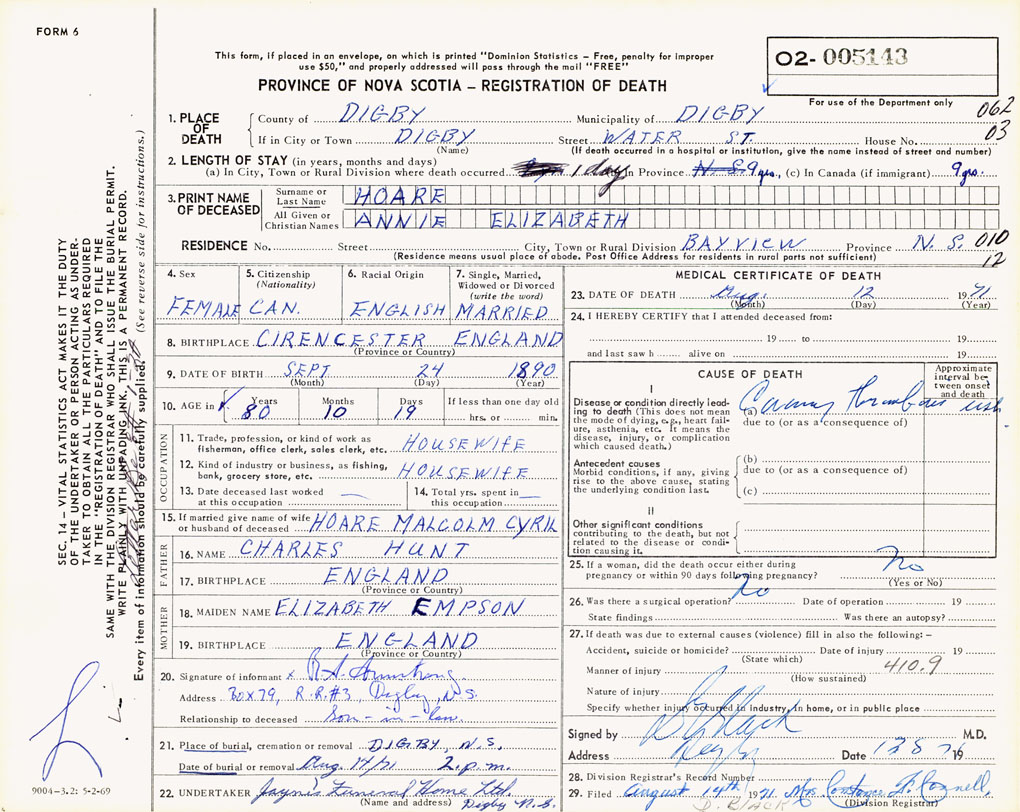 FORM 6
This form, if placed in an envelope, on which is printed "Dominion Statistics – Free, penalty for improper
use $50," and properly addressed will pass through the mail "FREE"
O2- 005143
PROVINCE OF NOVA SCOTIA – REGISTRATION OF DEATH
For use of the Department only
062
03
1. PLACE OF DEATH
County of DIGBY Municipality of DIGBY
If in City or Town DIGBY Street WATER ST. House No.
(Name) (If death occurred in a hospital or institution, give the name instead of street and number)
2. LENGTH OF STAY (in years, months and days)
(a) In City, Town or Rural Division where death occurred 1 day In Province N.S. 9 yrs., (c) In Canada (if immigrant) 9 yrs.
3. PRINT NAME OF DECEASED
Surname or Last Name HOARE
All Given or Christian Names ANNIE ELIZABETH
RESIDENCE No. Street City, Town or Rural Division BAYVIEW Province N.S. 010
(Residence means usual place of abode. Post Office Address for residents in rural parts not sufficient) 12
4. Sex FEMALE
5. Citizenship (Nationality) CAN.
6. Racial Origin ENGLISH
7. Single, Married, Widowed or Divorced (write the word) MARRIED
8. BIRTHPLACE CIRENCESTER ENGLAND
(Province or Country)
9. DATE OF BIRTH SEPT 24 1890
(Month) (Day) (Year)
10. AGE in Years 80 Months 10 Days 19 If less than one day old
hrs. or min.
OCCUPATION
11. Trade, profession, or kind of work as fisherman, office clerk, sales clerk, etc. HOUSEWIFE
12. Kind of industry or business, as fishing, bank, grocery store, etc. HOUSEWIFE
13. Date deceased last worked at this occupation —
14. Total yrs. spent in this occupation —
15. If married give name of wife or husband of deceased HOARE MALCOLM CYRIL
FATHER
16. NAME CHARLES HUNT
17. BIRTHPLACE ENGLAND
(Province or Country)
MOTHER
18. MAIDEN NAME ELIZABETH EMPSON
19. BIRTHPLACE ENGLAND
(Province or Country)
20. Signature of informant x R.A. Armstrong
Address Box 79, R.R.#3, Digby, N.S.
Relationship to deceased Son-in-law.
21. Place of burial, cremation or removal DIGBY, N.S.
Date of burial or removal Aug. 14/71 2 p.m.
22. UNDERTAKER Jayne's Funeral Home Ltd.
(Name and address) Digby N.S.
MEDICAL CERTIFICATE OF DEATH
23. DATE OF DEATH Aug. 12 1971
(Month) (Day) (Year)
24. I HEREBY CERTIFY that I attended deceased from:
19 to 19
and last saw h alive on 19
CAUSE OF DEATH
Approximate interval between onset and death
I
Disease or condition directly leading to death (This does not mean the mode of dying, e.g., heart failure, asthenia, etc. It means the disease, injury, or complication which caused death.)
(a) Coronary Thrombosis
due to (or as a consequence of)
Antecedent causes
Morbid conditions, if any, giving rise to the above cause, stating the underlying condition last.
(b)
due to (or as a consequence of)
(c)
II
Other significant conditions
contributing to the death, but not related to the disease or condition causing it.
25. If a woman, did the death occur either during pregnancy or within 90 days following pregnancy? No
(Yes or No)
26. Was there a surgical operation? No Date of operation 19
State findings Was there an autopsy?
27. If death was due to external causes (violence) fill in also the following: –
Accident, suicide or homicide? Date of injury 19
(State which)
Manner of injury 410.9
(How sustained)
Nature of injury
Specify whether injury occurred in industry, in home, or in public place
Signed by M.D.
Address Digby Date 12 8 71 19
28. Division Registrar's Record Number
29. Filed August 14th 1971 Mrs Constance
D. BLACK (Division Registrar)
SEC. 14 – VITAL STATISTICS ACT MAKES IT THE DUTY
OF THE UNDERTAKER OR PERSON ACTING AS UNDER-
TAKER TO OBTAIN ALL THE PARTICULARS REQUIRED
IN THE "REGISTRATION OF DEATH" AND TO FILE THE
SAME WITH THE DIVISION REGISTRAR WHO SHALL ISSUE THE BURIAL PERMIT.
WRITE PLAINLY WITH UNFADING INK. THIS IS A PERMANENT RECORD.
Every item of information should be carefully supplied. (See reverse side for instructions.)
9004-3.2: 5-2-69